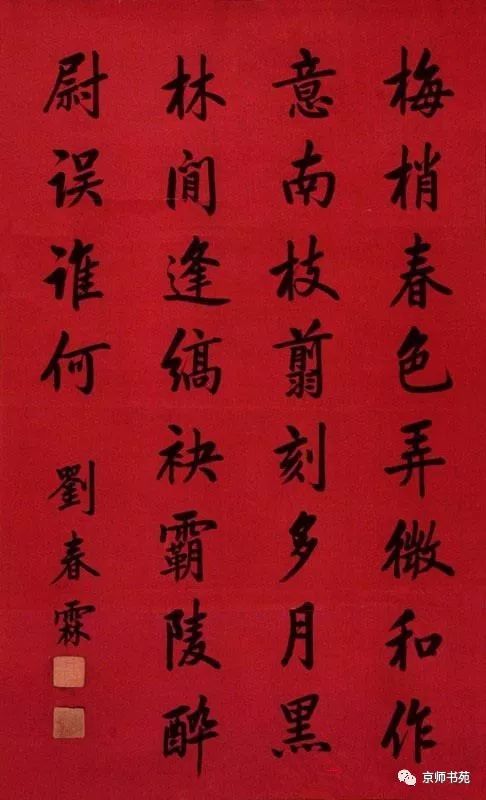 梅梢春色弄微和作
意南枝翦刻多月黑
林间逢缟袂霸陵醉
尉误谁何
劉春霖
京师书苑